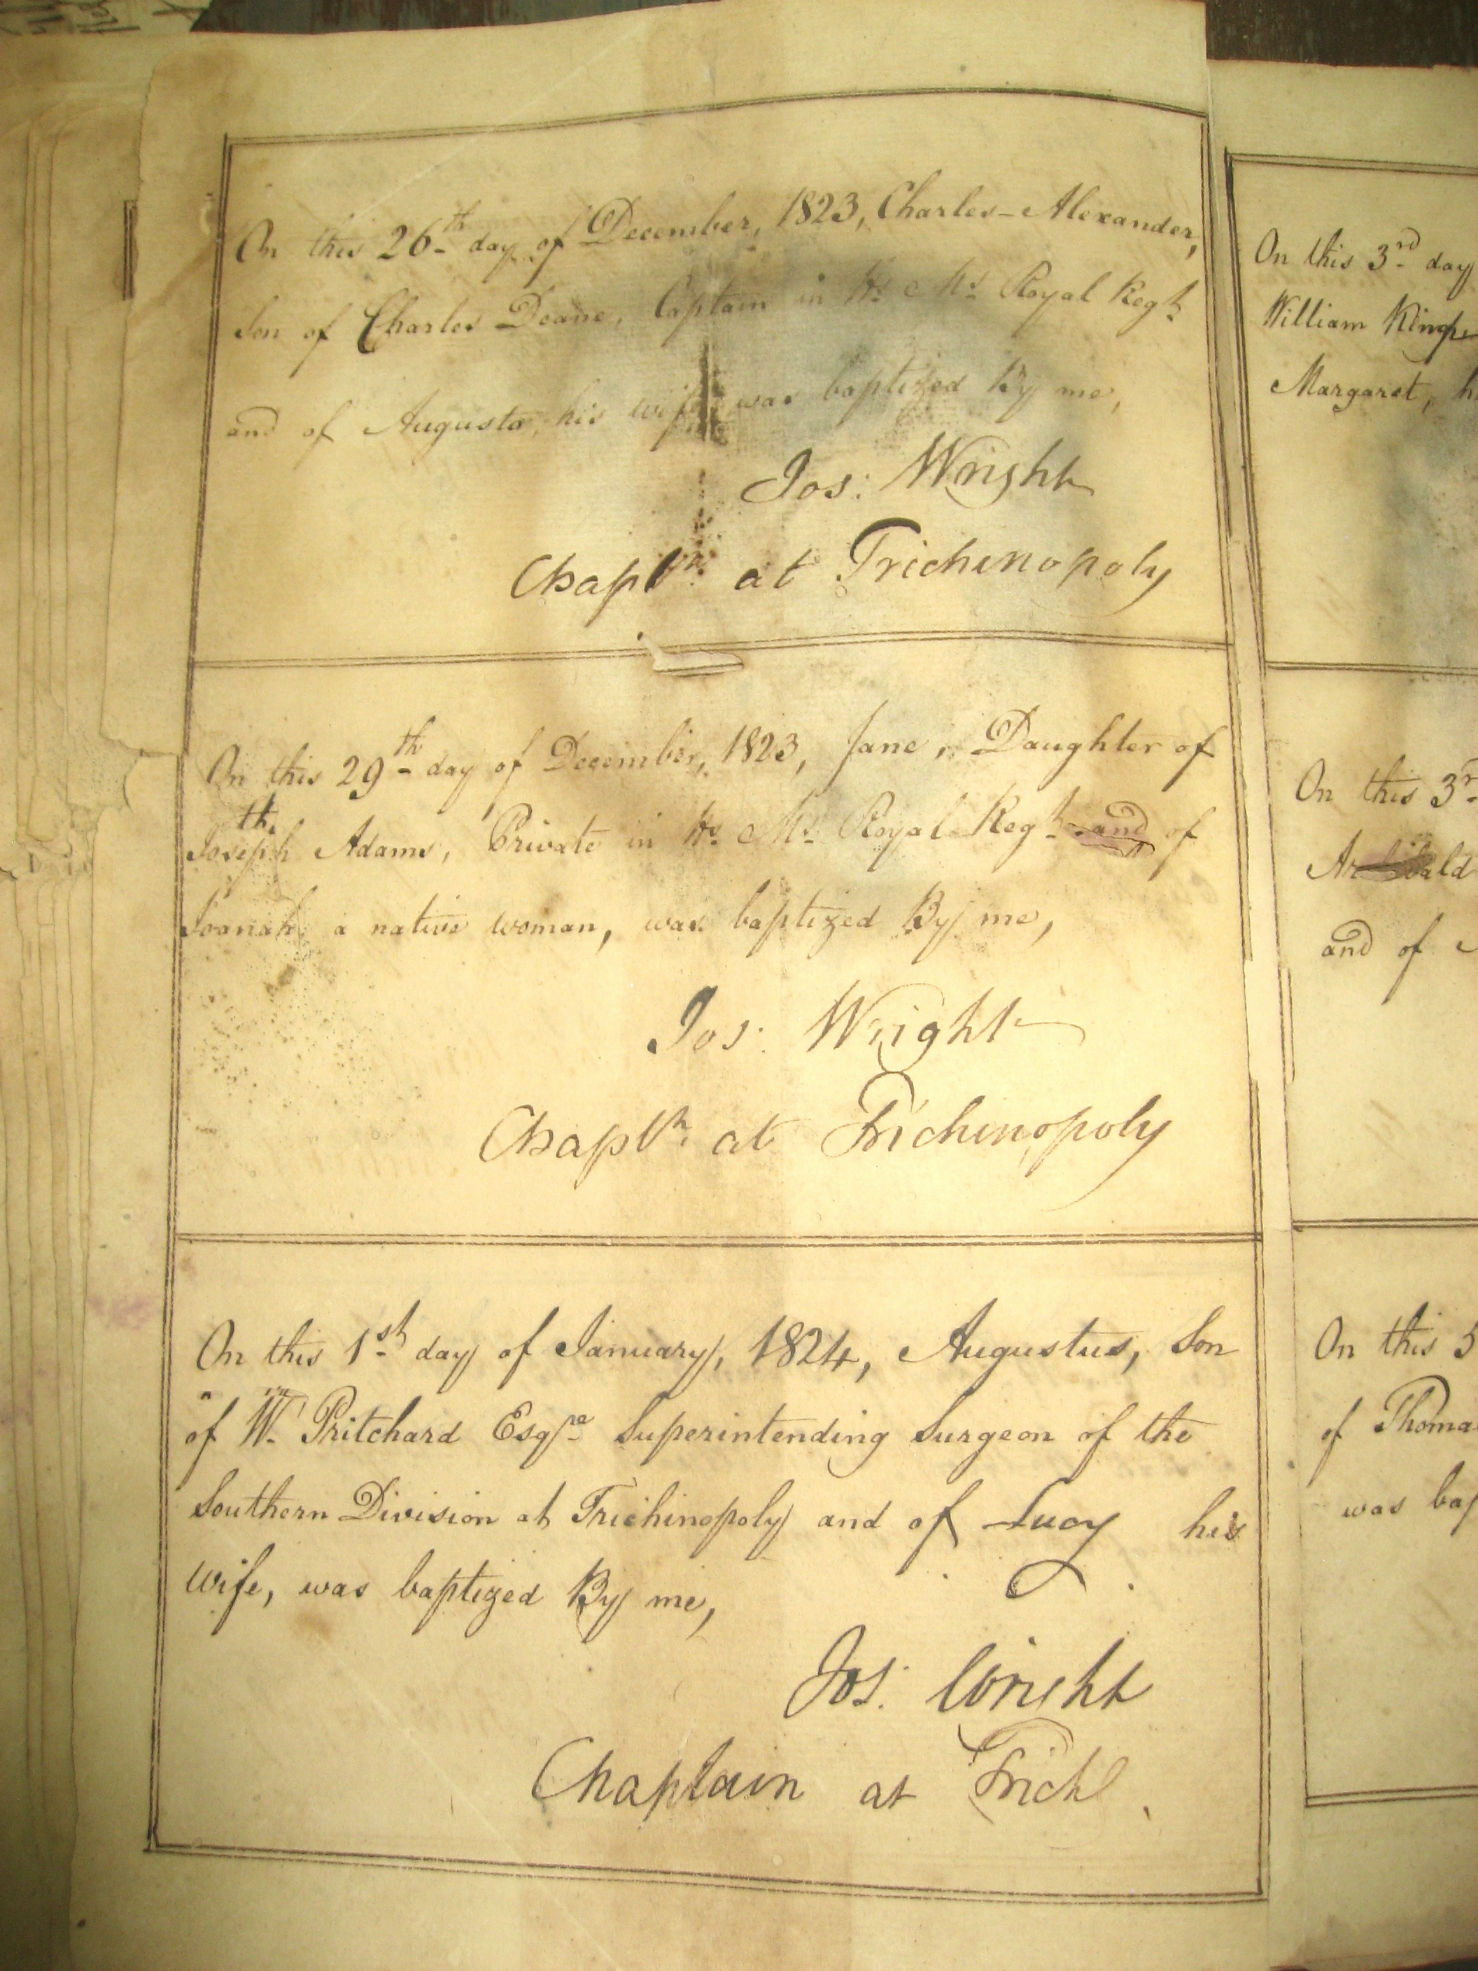 On this 26th day of December, 1823, Charles-Alexander,
Son of Charles Deane, Captain in Hs. Ms. Royal Regt.
and of Augusta, his wife was baptized By me,
Jos: Wright
Chapln. at Trichinopoly
On this 29th day of December, 1823, Jane, Daughter of
Joseph Adams, Private in Hs. Ms. Royal Regt. and of
a native woman, was baptized By me,
Jos: Wright
Chapln. at Trichinopoly
On this 1st day of January, 1824, Augustus, Son
of Wm. Pritchard Esqre. Superintending Surgeon of the
Southern Division at Trichinopoly and of Lucy his
wife, was baptized By me,
Jos: Wright
Chaplain at Trichl.
On this 3rd day
William
Margaret, h
On this 3r
and of
On this 5
of Thoma
was bap